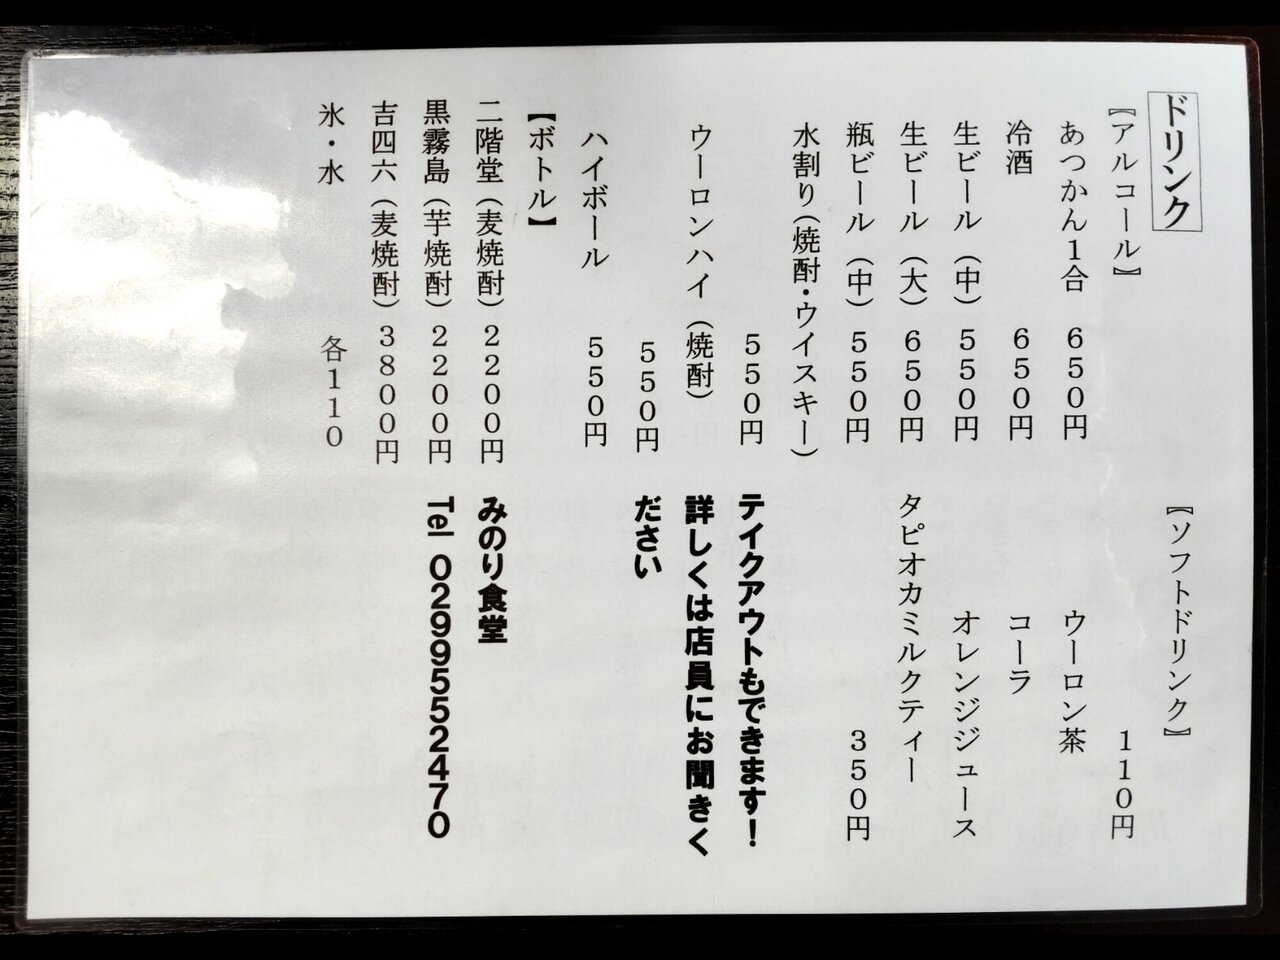 ドリンク
【アルコール】
あつかん1合 650円
冷酒 650円
生ビール(中) 550円
生ビール(大) 650円
瓶ビール(中) 550円
水割り(焼酎・ウイスキー)
550円
ウーロンハイ(焼酎)
550円
ハイボール 550円
【ボトル】
二階堂(麦焼酎)2200円
黒霧島(芋焼酎)2200円
吉四六(麦焼酎)3800円
氷・水 各110
【ソフトドリンク】
110円
ウーロン茶
コーラ
オレンジジュース
タピオカミルクティー
350円
テイクアウトもできます!
詳しくは店員にお聞きく
ださい
みのり食堂
Tel 0299552470